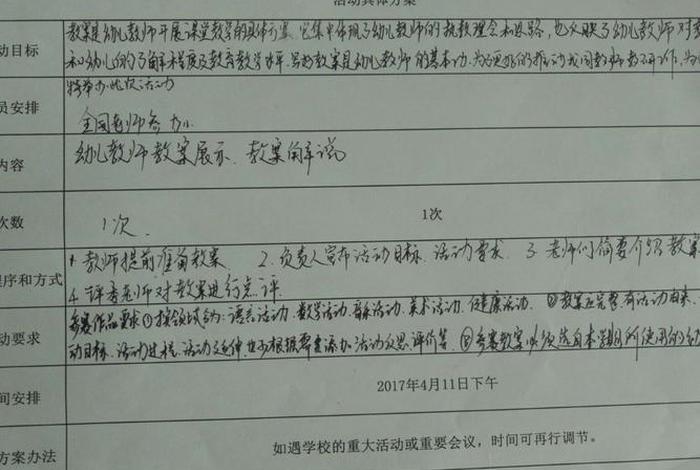 活动具体方案
动目标
教案是幼儿教师开展课堂教学的具体方案,它集中体现了幼儿教师的执教理念和思路,也反映了幼儿教师对
和幼儿的了解程度及教育教学水平。写好教案是幼儿教师的基本功,为了更好的推动我园教师教研工作,为
特举办此次活动
员安排
全园老师参加
内容
幼儿教师教案展示、教案解说
次数
1次.
1次
程序和方式
1.教师提前准备教案 2.负责人宣布活动目标、活动要求 3.老师们简要介绍教案
4.评委老师对教案进行点评.
动要求
参赛作品要求①按领域分为:语言活动、数学活动、音乐活动、美术活动、健康活动. ②教案应完整,有活动由来、
动目标、活动过程、活动延伸,也可根据需要添加活动反思、评价等. ③参赛教案必须选自本学期所使用的
间安排
2017年4月11日下午
方案办法
如遇学校的重大活动或重要会议,时间可再行调节。